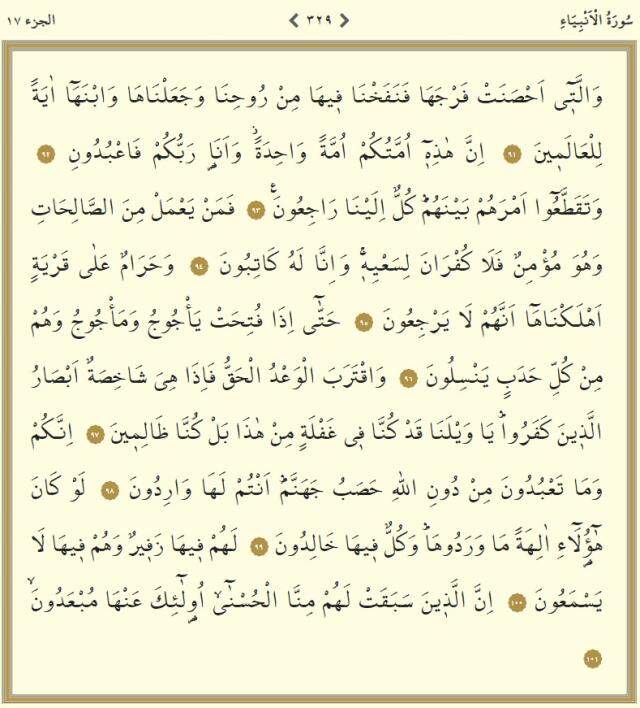 سُورَةُ الْاَنْبِيَاءِ ❮ ٣٢٩ ❯ الجزء ١٧
وَالَّت۪ٓي اَحْصَنَتْ فَرْجَهَا فَنَفَخْنَا ف۪يهَا مِنْ رُوحِنَا وَجَعَلْنَاهَا وَابْنَهَٓا اٰيَةً
لِلْعَالَم۪ينَ ٩١ اِنَّ هٰذِه۪ٓ اُمَّتُكُمْ اُمَّةً وَاحِدَةًۘ وَاَنَا۬ رَبُّكُمْ فَاعْبُدُونِ ٩٢
وَتَقَطَّعُٓوا اَمْرَهُمْ بَيْنَهُمْۜ كُلٌّ اِلَيْنَا رَاجِعُونَ۟ ٩٣ فَمَنْ يَعْمَلْ مِنَ الصَّالِحَاتِ
وَهُوَ مُؤْمِنٌ فَلَا كُفْرَانَ لِسَعْيِه۪ۚ وَاِنَّا لَهُ كَاتِبُونَ ٩٤ وَحَرَامٌ عَلٰى قَرْيَةٍ
اَهْلَكْنَاهَٓا اَنَّهُمْ لَا يَرْجِعُونَ ٩٥ حَتّٰٓى اِذَا فُتِحَتْ يَأْجُوجُ وَمَأْجُوجُ وَهُمْ
مِنْ كُلِّ حَدَبٍ يَنْسِلُونَ ٩٦ وَاقْتَرَبَ الْوَعْدُ الْحَقُّ فَاِذَا هِيَ شَاخِصَةٌ اَبْصَارُ
الَّذ۪ينَ كَفَرُواۜ يَا وَيْلَنَا قَدْ كُنَّا ف۪ي غَفْلَةٍ مِنْ هٰذَا بَلْ كُنَّا ظَالِم۪ينَ ٩٧ اِنَّكُمْ
وَمَا تَعْبُدُونَ مِنْ دُونِ اللّٰهِ حَصَبُ جَهَنَّمَۜ اَنْتُمْ لَهَا وَارِدُونَ ٩٨ لَوْ كَانَ
هٰٓؤُ۬لَٓاءِ اٰلِهَةً مَا وَرَدُوهَاۜ وَكُلٌّ ف۪يهَا خَالِدُونَ ٩٩ لَهُمْ ف۪يهَا زَف۪يرٌ وَهُمْ ف۪يهَا لَا
يَسْمَعُونَ ١٠٠ اِنَّ الَّذ۪ينَ سَبَقَتْ لَهُمْ مِنَّا الْحُسْنٰٓىۙ اُو۬لٰٓئِكَ عَنْهَا مُبْعَدُونَۙ
١٠١